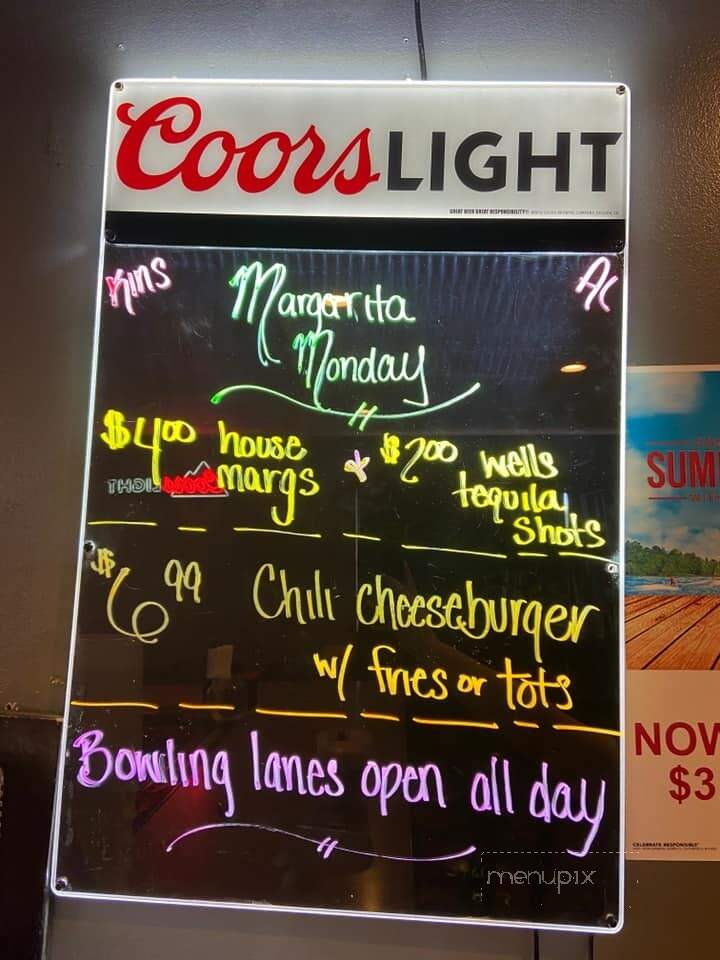 Coors LIGHT
GREAT BEER GREAT RESPONSIBILITY®
Kins
AC
Margarita
Monday
$4.00 house
margs
& $2.00 wells
tequila
shots
$6.99 Chili cheeseburger
w/ fries or tots
Bowling lanes open all day
SUM
NOW
$3
CELEBRATE RESPONSIBLY®
menupix